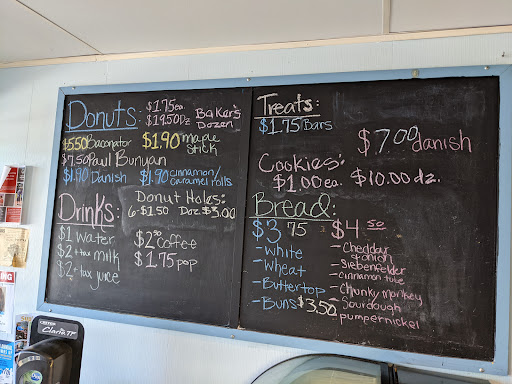 Donuts: $1.75 ea.
$19.50 Dz Baker's Dozen
$5.50 Baconator $1.90 maple stick
$7.50 Paul Bunyan
$1.90 Danish $1.90 cinnamon/ caramel rolls
Donut Holes:
6-$1.50 Doz $3.00
Drinks:
$1 water
$2 + tax milk
$2 + tax juice
$2.50 Coffee
$1.75 pop
Treats:
$1.75 Bars
$7.00 danish
Cookies:
$1.00 ea. $10.00 dz.
Bread:
$3.75
- white
- Wheat
- Buttertop
- Buns $3.50
$4.50
- Cheddar & onion
- Siebenfelder
- cinnamon tube
- Chunky monkey
- Sourdough
pumpernickel
Claria